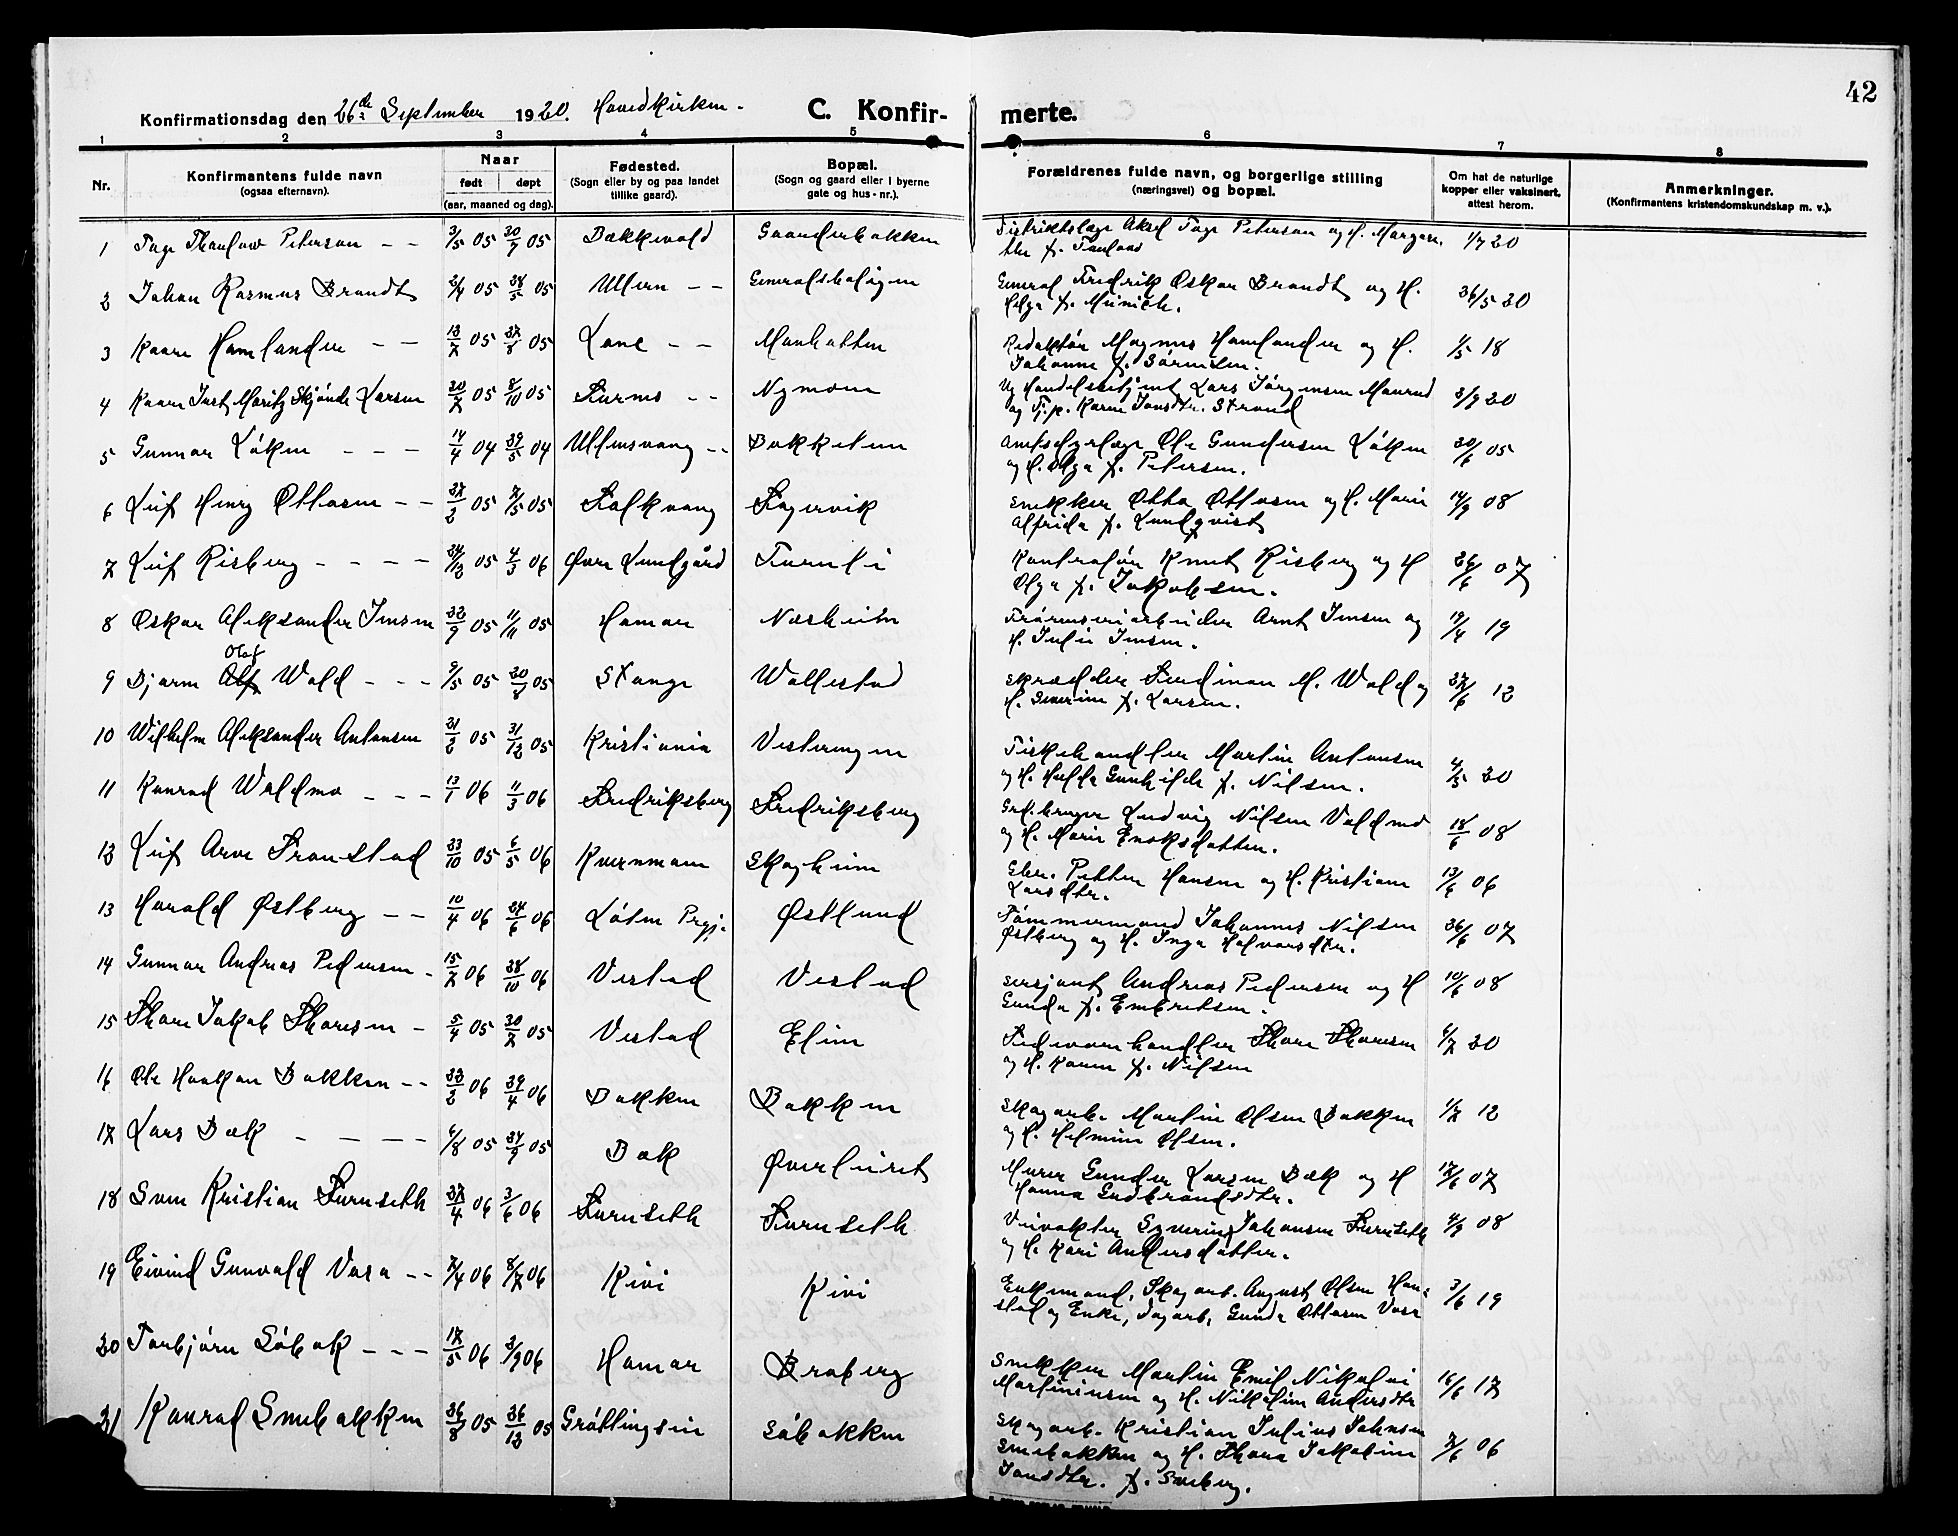 42
Konfirmationsdag den 26de September 1920. Hovedkirken.
C. Konfir-
merte.
1 2 3 4 5 6 7 8
Nr.
Konfirmantens fulde navn
(ogsaa efternavn).
Naar
født døpt
(aar, maaned og dag).
Fødested.
(Sogn eller by og paa landet
tillike gaard).
Bopæl.
(Sogn og gaard eller i byerne
gate og hus-nr.).
Forældrenes fulde navn, og borgerlige stilling
(næringsvei) og bopæl.
Om hat de naturlige
kopper eller vaksinert,
attest herom.
Anmerkninger.
(Konfirmantens kristendomskundskap m. v.).
1 Tage Thaulow Petersen 3/5 05 30/7 05 Bækkevold Distriktslæge Aksel Tage Petersen og H. Margre- 1/7 20
the f. Thaulow
2 Johan Rasmus Brandt 2/4 05 28/5 05 Ullern Generalsboligen General Fredrik Oskar Brandt og H. 26/5 20
Helga f. Münich.
3 Kaare Hamlander 13/7 05 27/8 05 Manhatten Redaktør Magnus Hamlander og H. 1/5 18
Johanne f. Sørensen.
4 Kaare Just Moritz Skjønde Larsen 20/7 05 8/10 05 Furnes Nymoen Ug. Handelsbetjent Lars Jørgensen Maurud 3/9 20
og Pi. p. Karen Jonsdtr. Strand
5 Gunnar Løken 14/4 04 29/5 04 Ullensvang Bakketun Amtsdyrlæge Ole Gundersen Løken 30/6 05
og H. Olga f. Petersen.
6 Leif Henry Ottosen 27/2 05 7/5 05 Folkvang Fagervik Snekker Otto Ottosen og H. Marie 14/9 08
Alfrida f. Lundqvist
7 Leif Risberg 24/12 05 4/3 06 Øvre Lundgård Furuli Kontrolør Knut Risberg og H 26/6 07
Olga f. Jakobsen.
8 Oskar Aleksander Jensen 22/9 05 11/11 05 Hamar Næsheim arbeider Arnt Jensen og 19/4 19
H. Julie Jensen.
9 Bjarne Olaf Wold 9/5 05 20/8 05 Stange Wollestad Skrædder Ferdinan M. Wold og 27/6 12
H. Severine f. Larsen.
10 Wilhelm Aleksander Antonsen 21/2 05 31/12 05 Kristiania Vestengen Fiskehandler Martin Antonsen 4/5 20
og H. Hulda Gunhilde f. Nilsen.
11 Konrad Woldmo 13/1 06 11/3 06 Fredriksberg Fredriksberg Grd.bruger Ludvig Nilsen Voldmo 18/6 08
og H. Marie Enoksdatter.
12 Leif Arve Fronstad 23/10 05 6/5 06 Kvernmoen Skogheim Eier. Petter Hansen og H. Kristiane 13/6 06
Larsdtr.
13 Harald Østberg 10/4 06 24/6 06 Løten Prgj. Østlund Tømmermand Johannes Nilsen 26/6 07
Østberg og H. Inga Halvorsdtr.
14 Gunnar Andreas Pedersen 15/7 06 28/10 06 Vestad Vestad Sersjant Andreas Pedersen og H 10/6 08
Gunda f. Embretsen.
15 Thore Jakob Thoresen 5/4 05 30/7 05 Vestad Elim Fedevarehandler Thore Thoresen 6/7 20
og H. Karen f. Nilsen
16 Ole Haakon Bakken 22/2 06 29/4 06 Bakken Bakken Skogarb. Martin Olsen Bakken 1/7 12
og H. Helmine Olsen.
17 Lars Bæk 6/8 05 24/9 05 Bæk Øverliset Murer Gunder Larsen Bæk og H 17/6 07
Hanna Gudbrandsdtr.
18 Sven Kristian Furuseth 27/4 06 3/6 06 Furuseth Furuseth Veivokter Syvering Johansen Furuseth 4/9 08
og H. Kari Andersdatter.
19 Eivind Gunvald Vasa 7/4 06 8/7 06 Kivi Kivi Enkemand, Skogarb. August Olsen Han- 3/6 19
stad og Enke, Dagarb. Gunda Ottosen Vasa
20 Torbjørn Søbak 17/5 06 2/9 06 Hamar Broberg Snekker Martin Emil Nikolai 16/6 17
Martinsen og H. Nikoline Andersdtr
21 Konrad Smebakken 26/8 05 26/12 05 Grøttingsin Søbakken Skogarb. Kristian Julius Johnsen 2/6 06
Smebakken og H. Thora Jakobine
Jonsdtr. f. Sneberg.